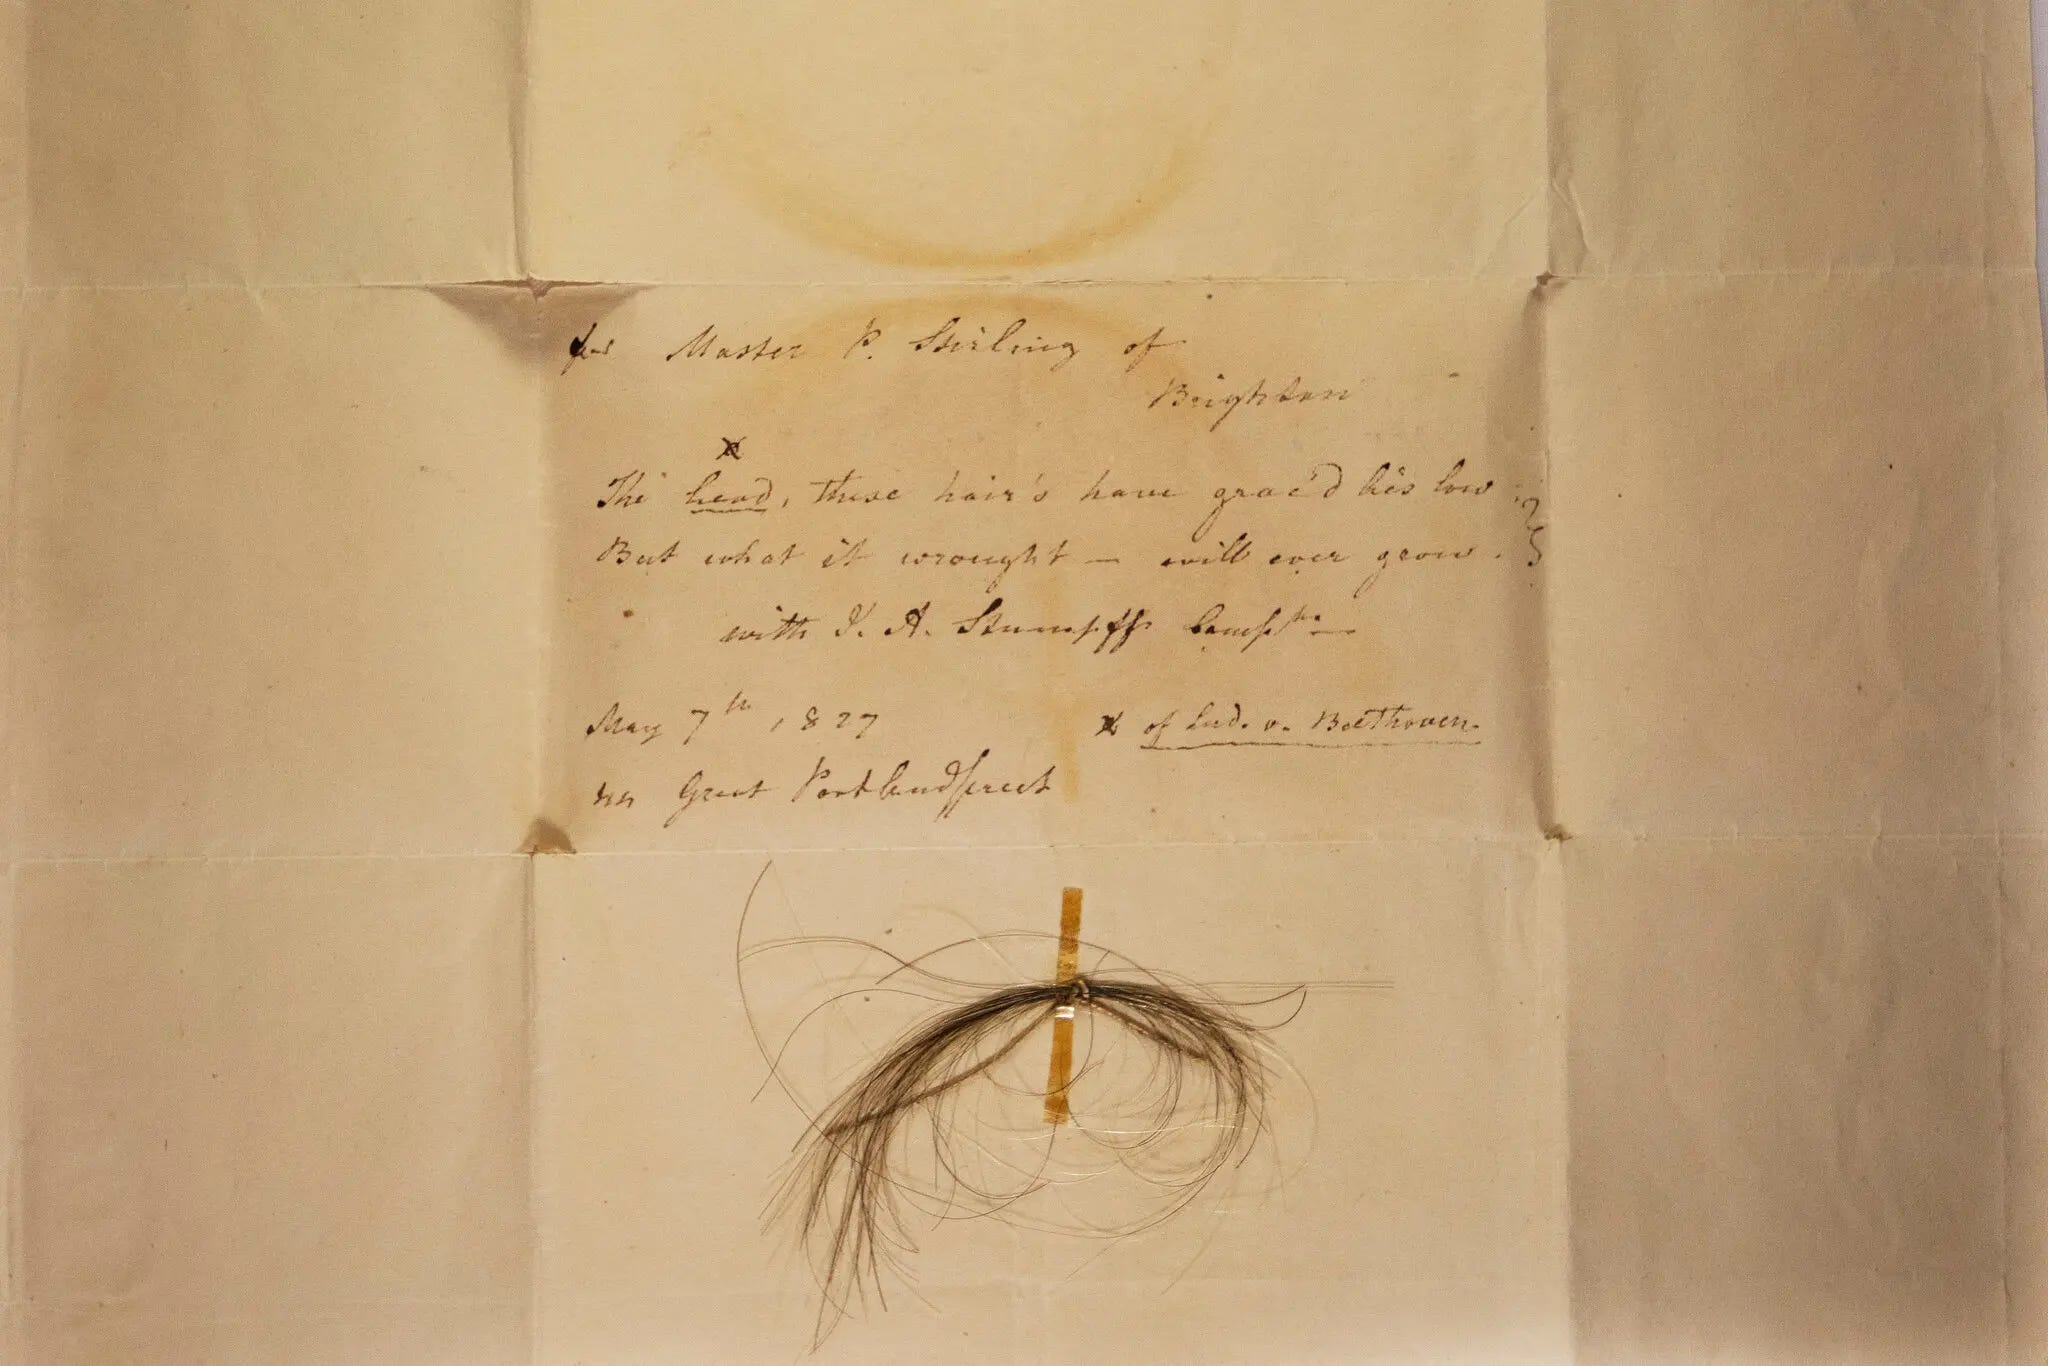 for Master P. Stirling of
Brighton
x
The head, these hair's have grac'd lies low
But what it wrought — will ever grow.
with J. A. Stumpff Compts.—
May 7th 1827
x of Lud. v. Beethoven.
44 Great Portlandstreet